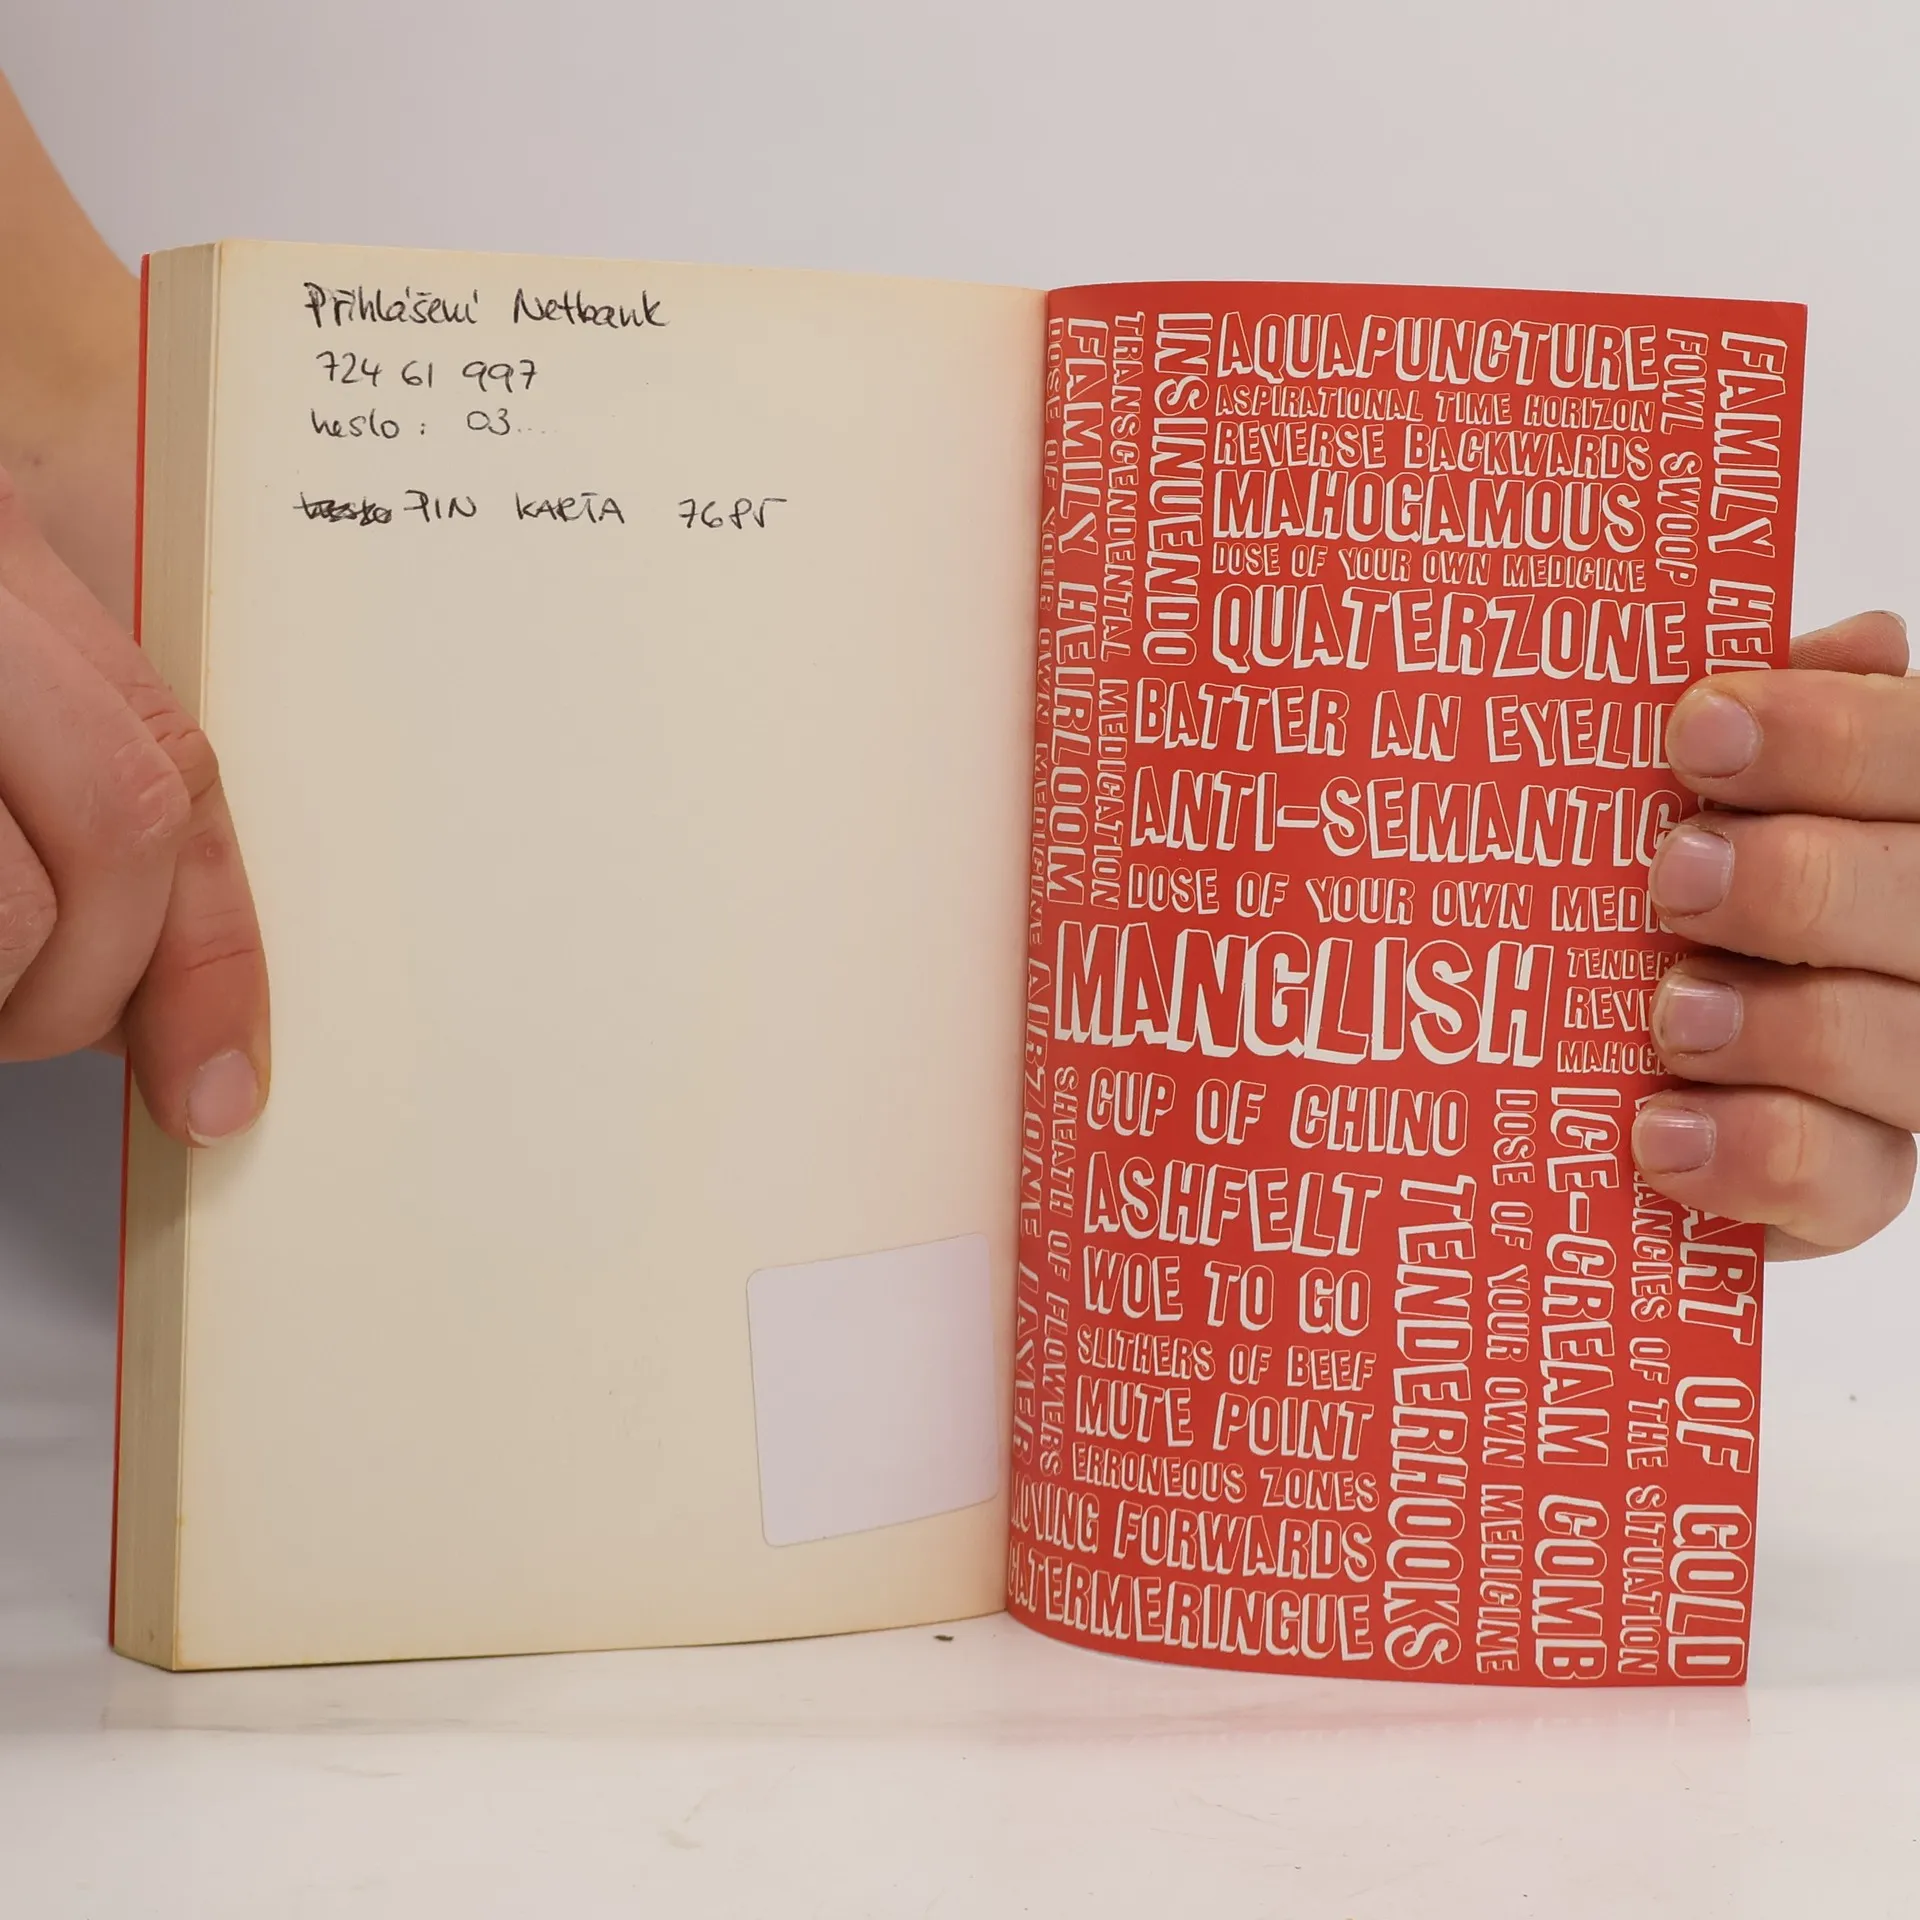 Přihlášení Netbank
724 61 997
heslo : 03...
PIN KARTA
DOSE OF YOUR OWN MEDICINE
FAMILY HEIRLOOM
TRANSCENDENTAL MEDICATION
INSINUENDO
AQUAPUNCTURE
ASPIRATIONAL TIME HORIZON
REVERSE BACKWARDS
MAHOGAMOUS
DOSE OF YOUR OWN MEDICINE
QUATERZONE
FOWL SWOOP
FAMILY HEI
BATTER AN EYELI
ANTI-SEMANTIC
DOSE OF YOUR OWN MEDI
MANGLISH
TENDER
REVE
MAHOG
AIRZONE LAYER
SHEATH OF FLOWERS
CUP OF CHINO
ASHFELT
WOE TO GO
SLITHERS OF BEEF
MUTE POINT
ERRONEOUS ZONES
MOVING FORWARDS
CATERMERINGUE
TENDERHOOKS
DOSE OF YOUR OWN MEDICINE
ICE-CREAM COMB
ANCIES OF THE SITUATION
ART OF GOLD